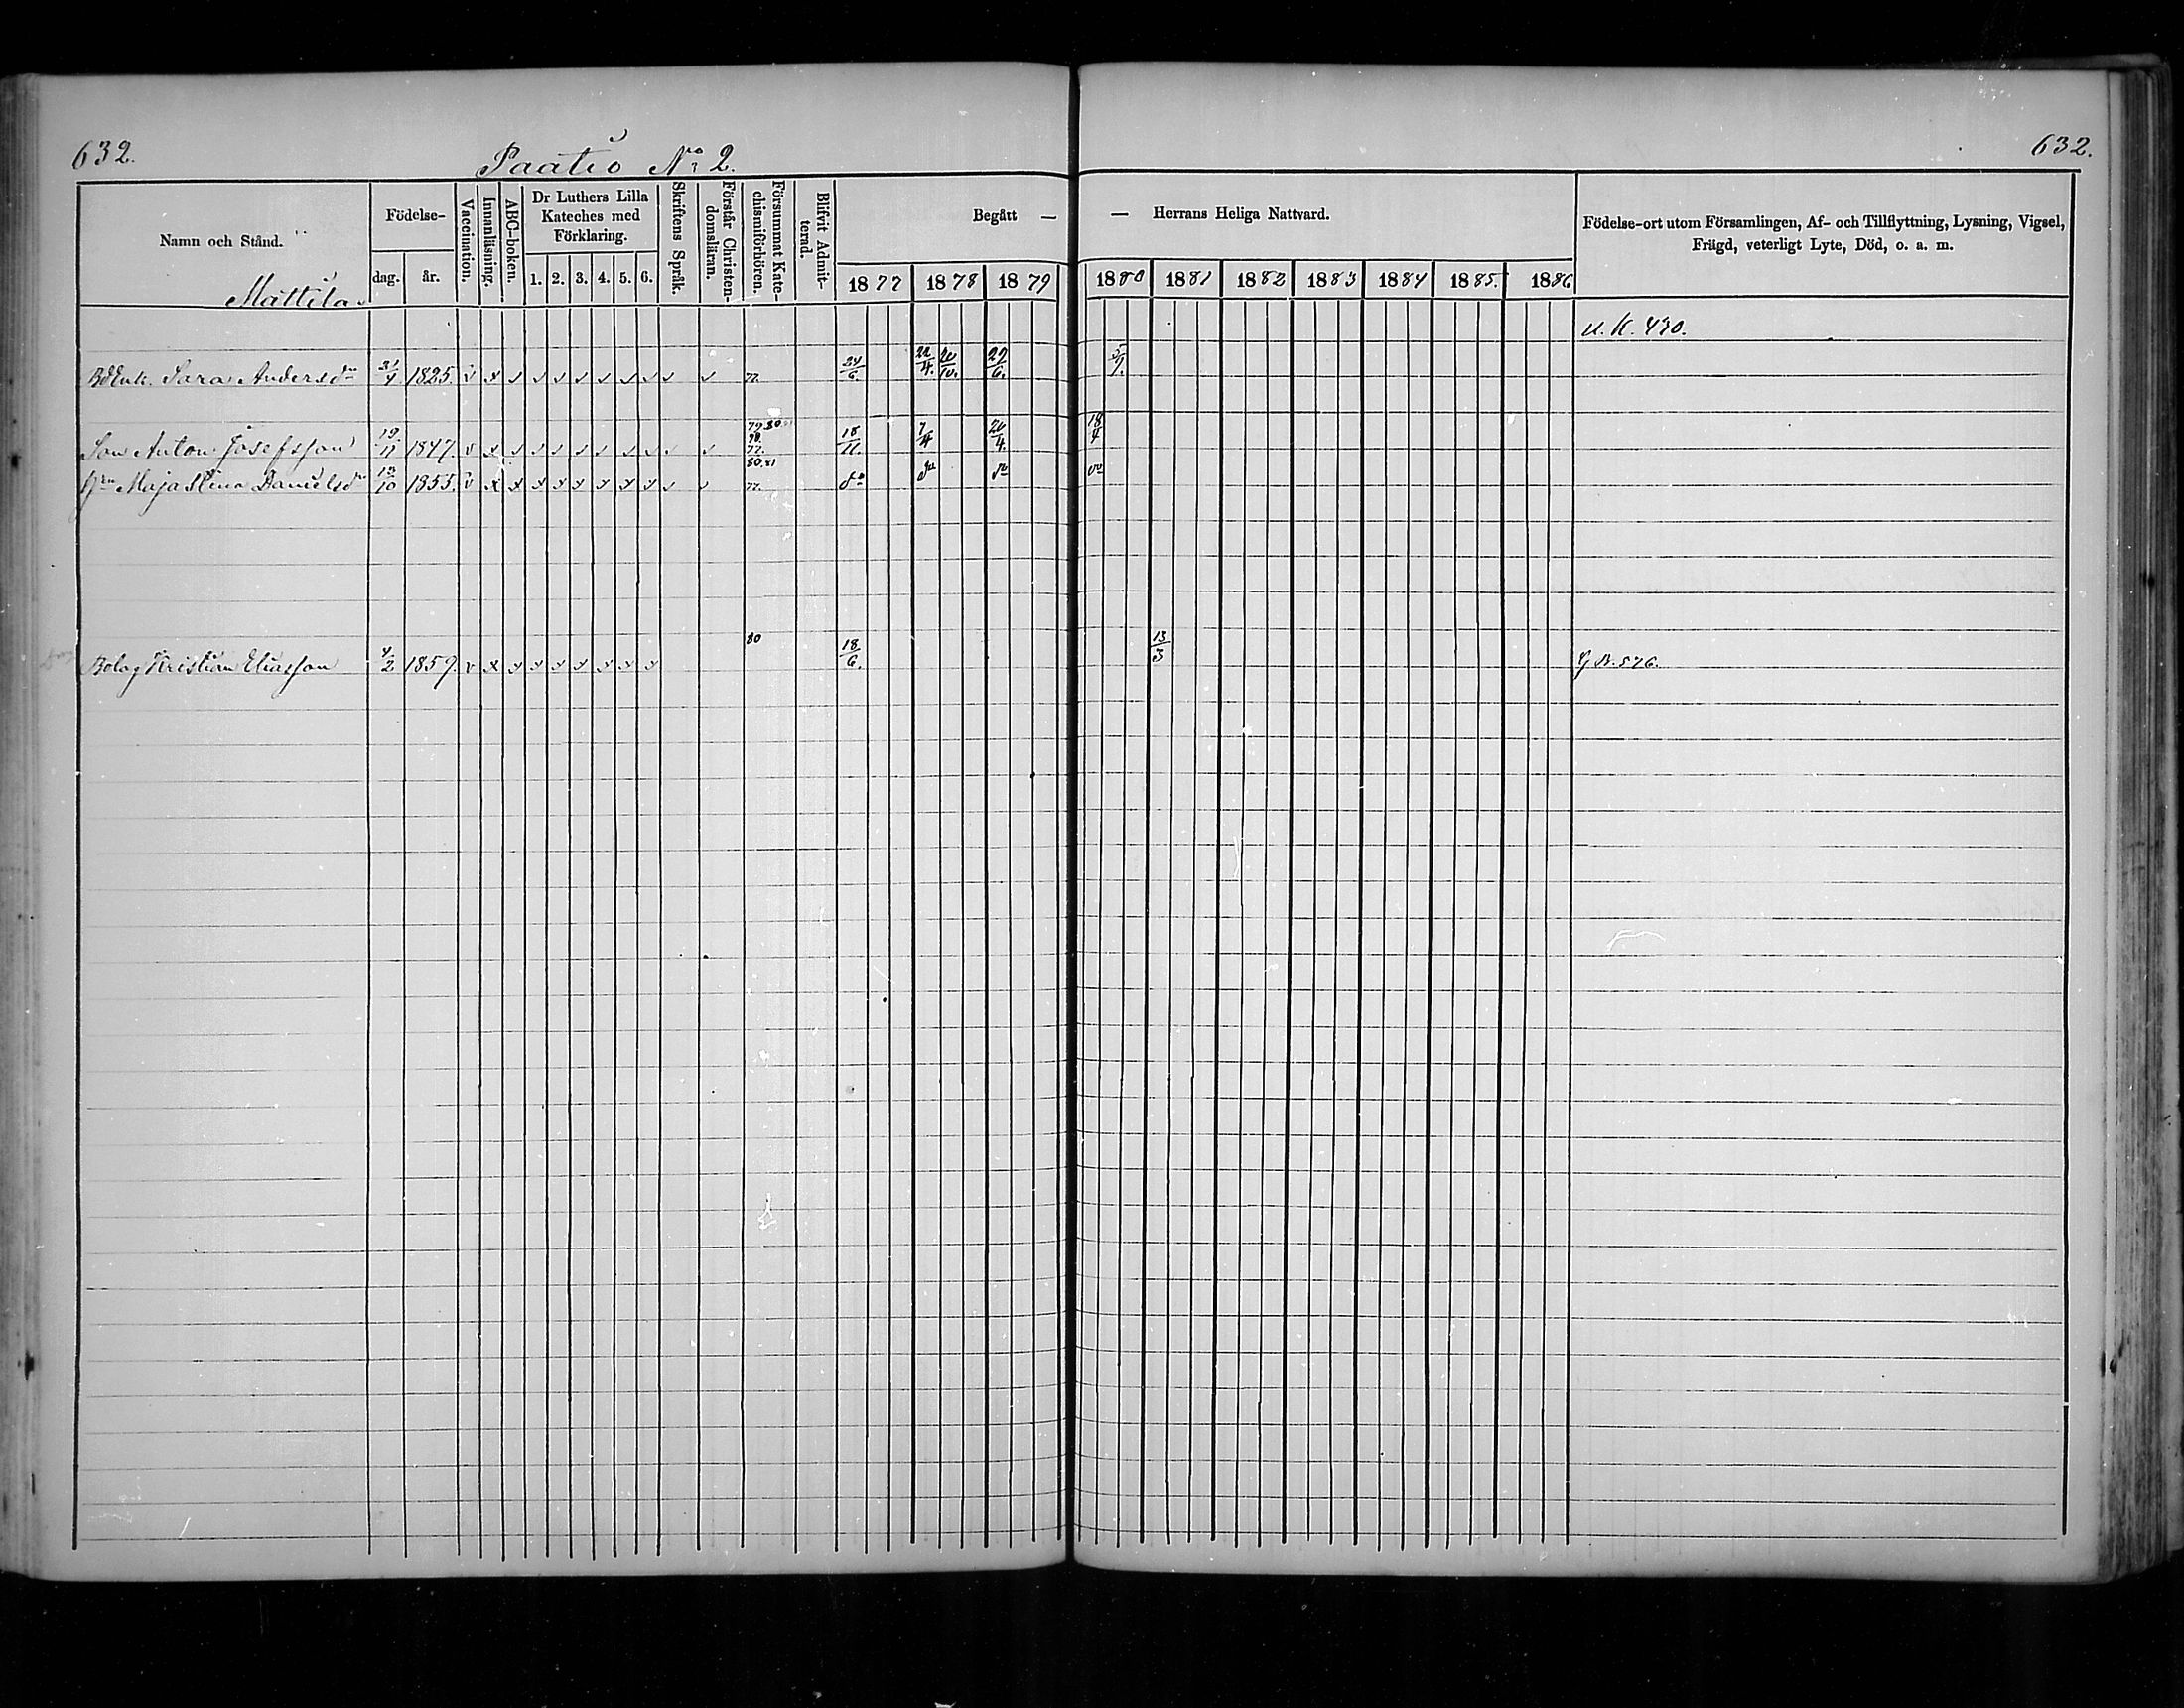 632.
Paatio No 2.
632.
Namn och Stånd.
Mattila
Födelse-
dag. år.
Vaccination.
Innanläsning.
ABC-boken.
Dr Luthers Lilla
Kateches med
Förklaring.
1. 2. 3. 4. 5. 6.
Skriftens Språk.
Förstår Christen-
domsläran.
Försummat Kate-
chismiförhören.
Blifvit Admit-
terad.
Begått —
— Herrans Heliga Nattvard.
1877 1878 1879 1880 1881 1882 1883 1884 1885. 1886
Födelse-ort utom Församlingen, Af- och Tillflyttning, Lysning, Vigsel,
Frägd, veterligt Lyte, Död, o. a. m.
U. K. 430.
Sara Andersdr 1825. 77. 24/6. 22/4. 20/10. 29/6.
79 80
78
Son Anton Josefsson 19/11 1847. 77. 18/11. 7/4 20/4. 18/4
80. 81
Maja Stina Danielsdr 1855. 77. do do do do
80
Bolag Kristian Eliasson 4/2 1859. 18/6. 13/3 576.